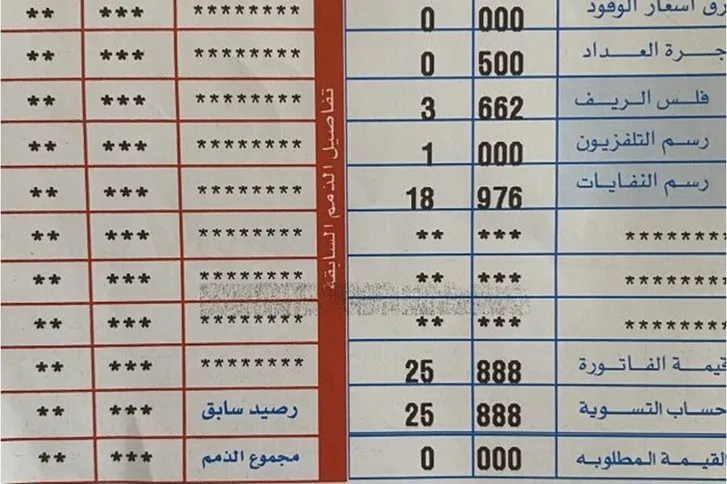 أسعار الوقود 000 0 ******** *** **
العداد 500 0 ******** *** **
فلس الريف 662 3 ******** *** **
رسم التلفزيون 000 1 ******** *** **
رسم النفايات 976 18 ******** *** **
******** *** ** ******** *** **
******** *** ** ******** *** **
******** *** ** ******** *** **
الفاتورة 888 25 ******** *** **
التسوية 888 25 رصيد سابق *** **
القيمة المطلوبه 000 0 مجموع الذمم *** **
تفاصيل الذمم السابقة